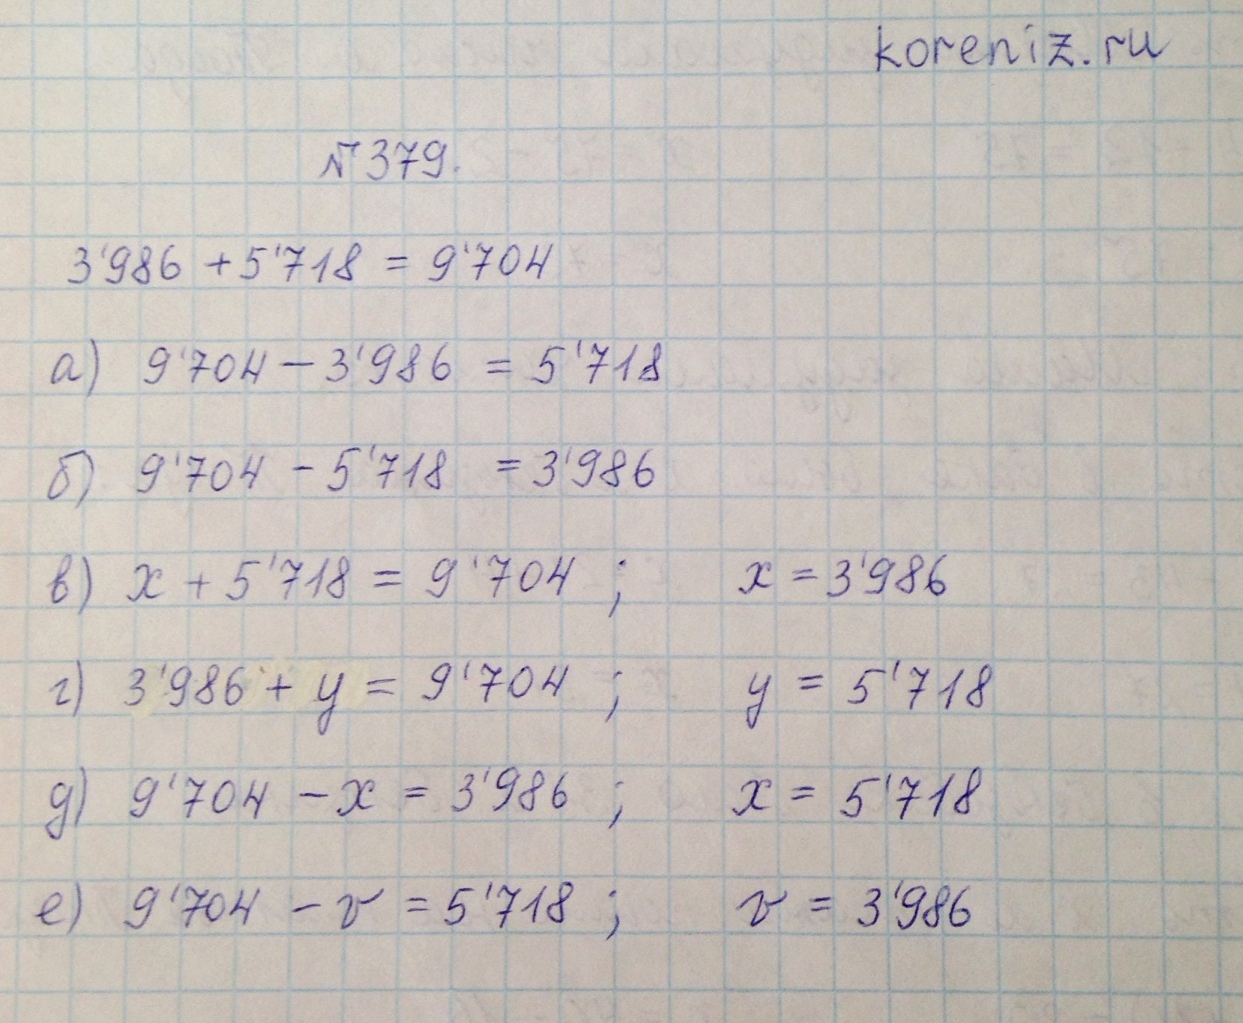 koreniz.ru
№379.
3'986 + 5'718 = 9'704
а) 9'704 - 3'986 = 5'718
б) 9'704 - 5'718 = 3'986
в) x + 5'718 = 9'704 ; x = 3'986
г) 3'986 + y = 9'704 ; y = 5'718
д) 9'704 - x = 3'986 ; x = 5'718
е) 9'704 - v = 5'718 ; v = 3'986